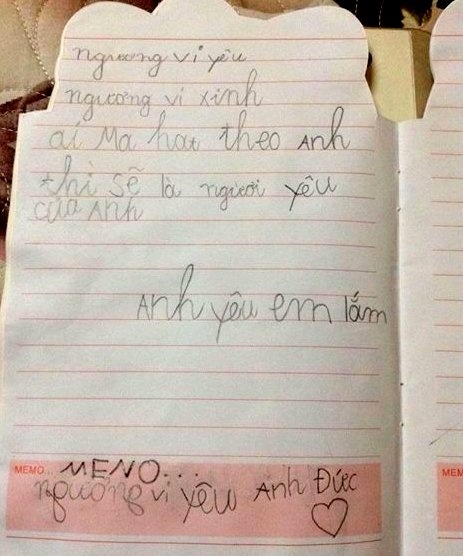 ngương vi yêu
ngương vi xinh
ai Ma hat theo Anh
thì sẽ là người yêu
của Anh
Anh yêu em lắm
MEMO...
MENO...
ngương vi yêu Anh Đức
MEM